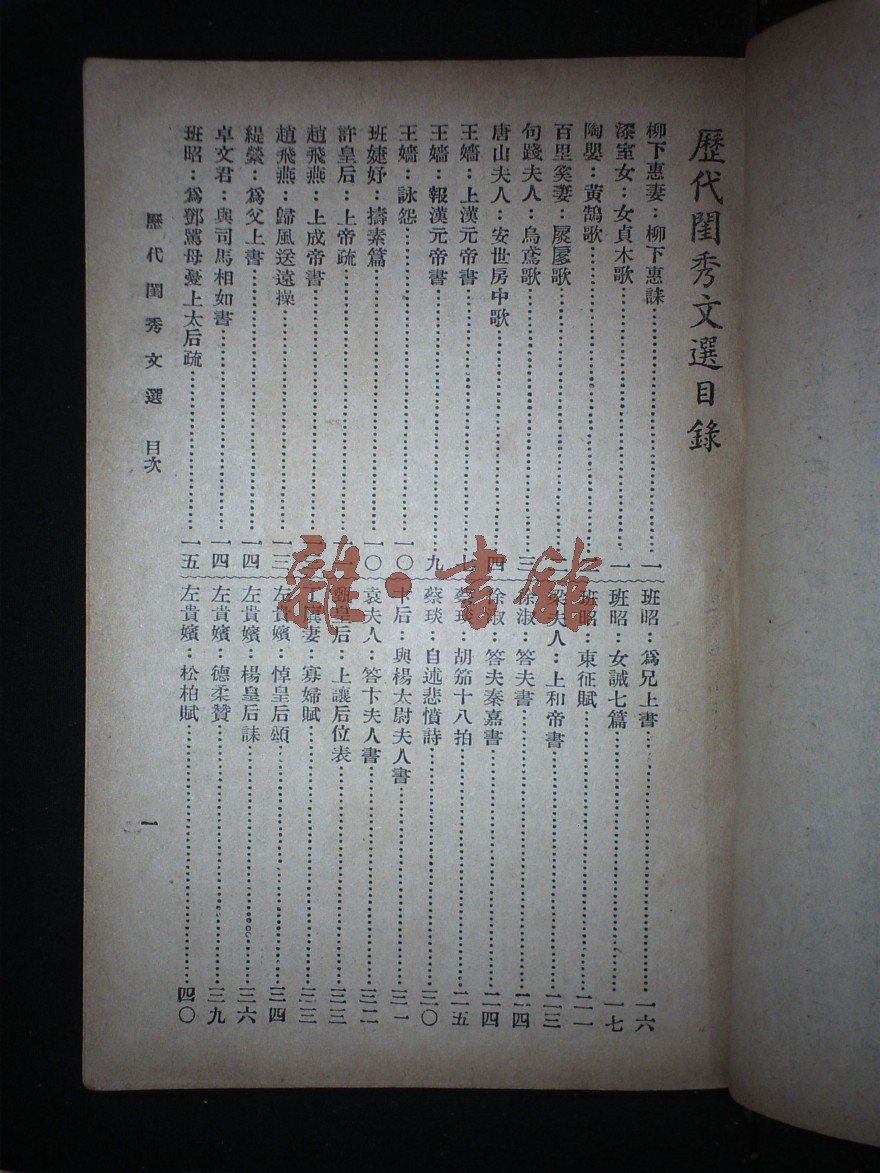 歷代閨秀文選目錄
柳下惠妻：柳下惠誄……一
漆室女：女貞木歌……一
陶嬰：黃鵠歌……
百里奚妻：扊扅歌……
句踐夫人：烏鳶歌……三
唐山夫人：安世房中歌……四
王嬙：上漢元帝書……七
王嬙：報漢元帝書……九
王嬙：詠怨……一〇
班婕妤：擣素篇……一〇
許皇后：上帝疏……
趙飛燕：上成帝書……
趙飛燕：歸風送遠操……一三
緹縈：爲父上書……一四
卓文君：與司馬相如書……一四
班昭：爲鄧騭母憂上太后疏……一五
班昭：爲兄上書……一六
班昭：女誡七篇……一七
班昭：東征賦……二一
梁夫人：上和帝書……二三
徐淑：答夫書……二四
徐淑：答夫秦嘉書……二四
蔡琰：胡笳十八拍……二五
蔡琰：自述悲憤詩……三〇
卞后：與楊太尉夫人書……三一
袁夫人：答卞夫人書……三二
甄皇后：上讓后位表……三三
丁廙妻：寡婦賦……三三
左貴嬪：悼皇后頌……三四
左貴嬪：楊皇后誄……三六
左貴嬪：德柔贊……三九
左貴嬪：松柏賦……四〇
歷代閨秀文選 目次
一
雜·書館